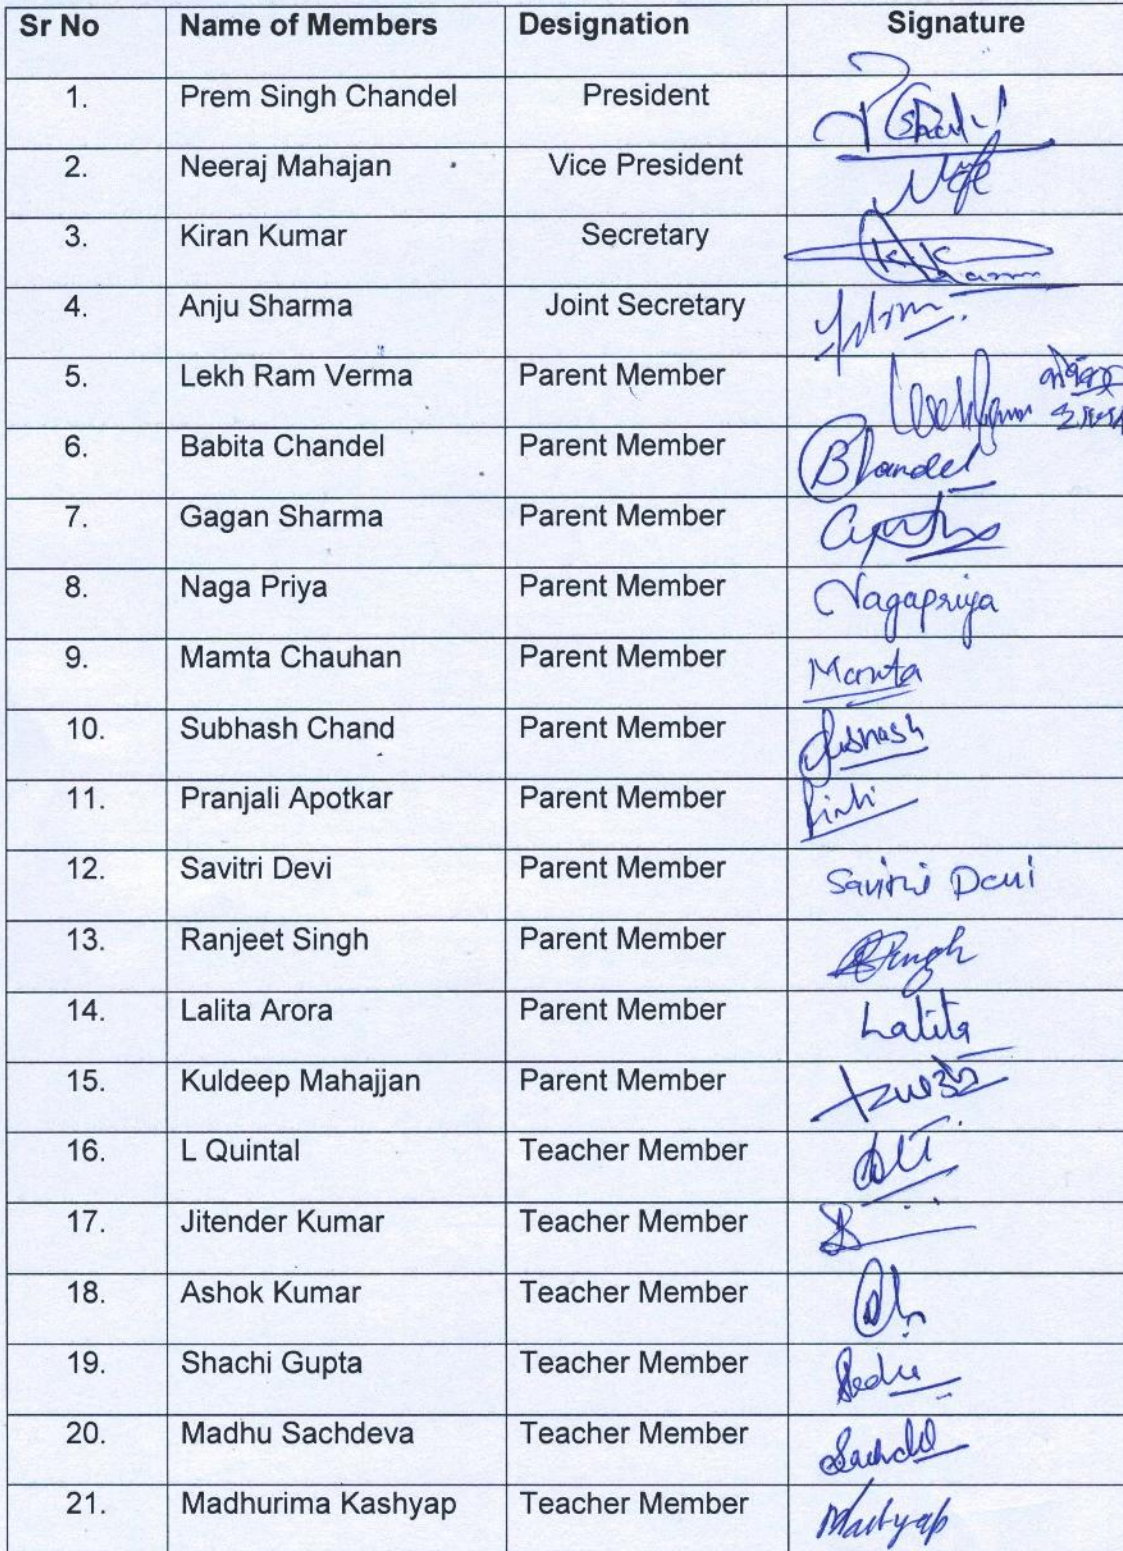 Sr No Name of Members Designation Signature
1. Prem Singh Chandel President
2. Neeraj Mahajan Vice President
3. Kiran Kumar Secretary
4. Anju Sharma Joint Secretary
5. Lekh Ram Verma Parent Member
6. Babita Chandel Parent Member
7. Gagan Sharma Parent Member
8. Naga Priya Parent Member Nagapriya
9. Mamta Chauhan Parent Member Mamta
10. Subhash Chand Parent Member
11. Pranjali Apotkar Parent Member
12. Savitri Devi Parent Member Savitri Devi
13. Ranjeet Singh Parent Member
14. Lalita Arora Parent Member Lalita
15. Kuldeep Mahajjan Parent Member
16. L Quintal Teacher Member
17. Jitender Kumar Teacher Member
18. Ashok Kumar Teacher Member
19. Shachi Gupta Teacher Member
20. Madhu Sachdeva Teacher Member
21. Madhurima Kashyap Teacher Member